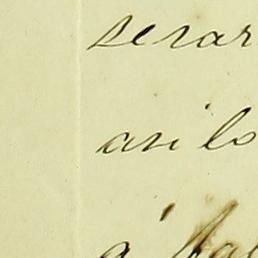 serar
asi lo
á